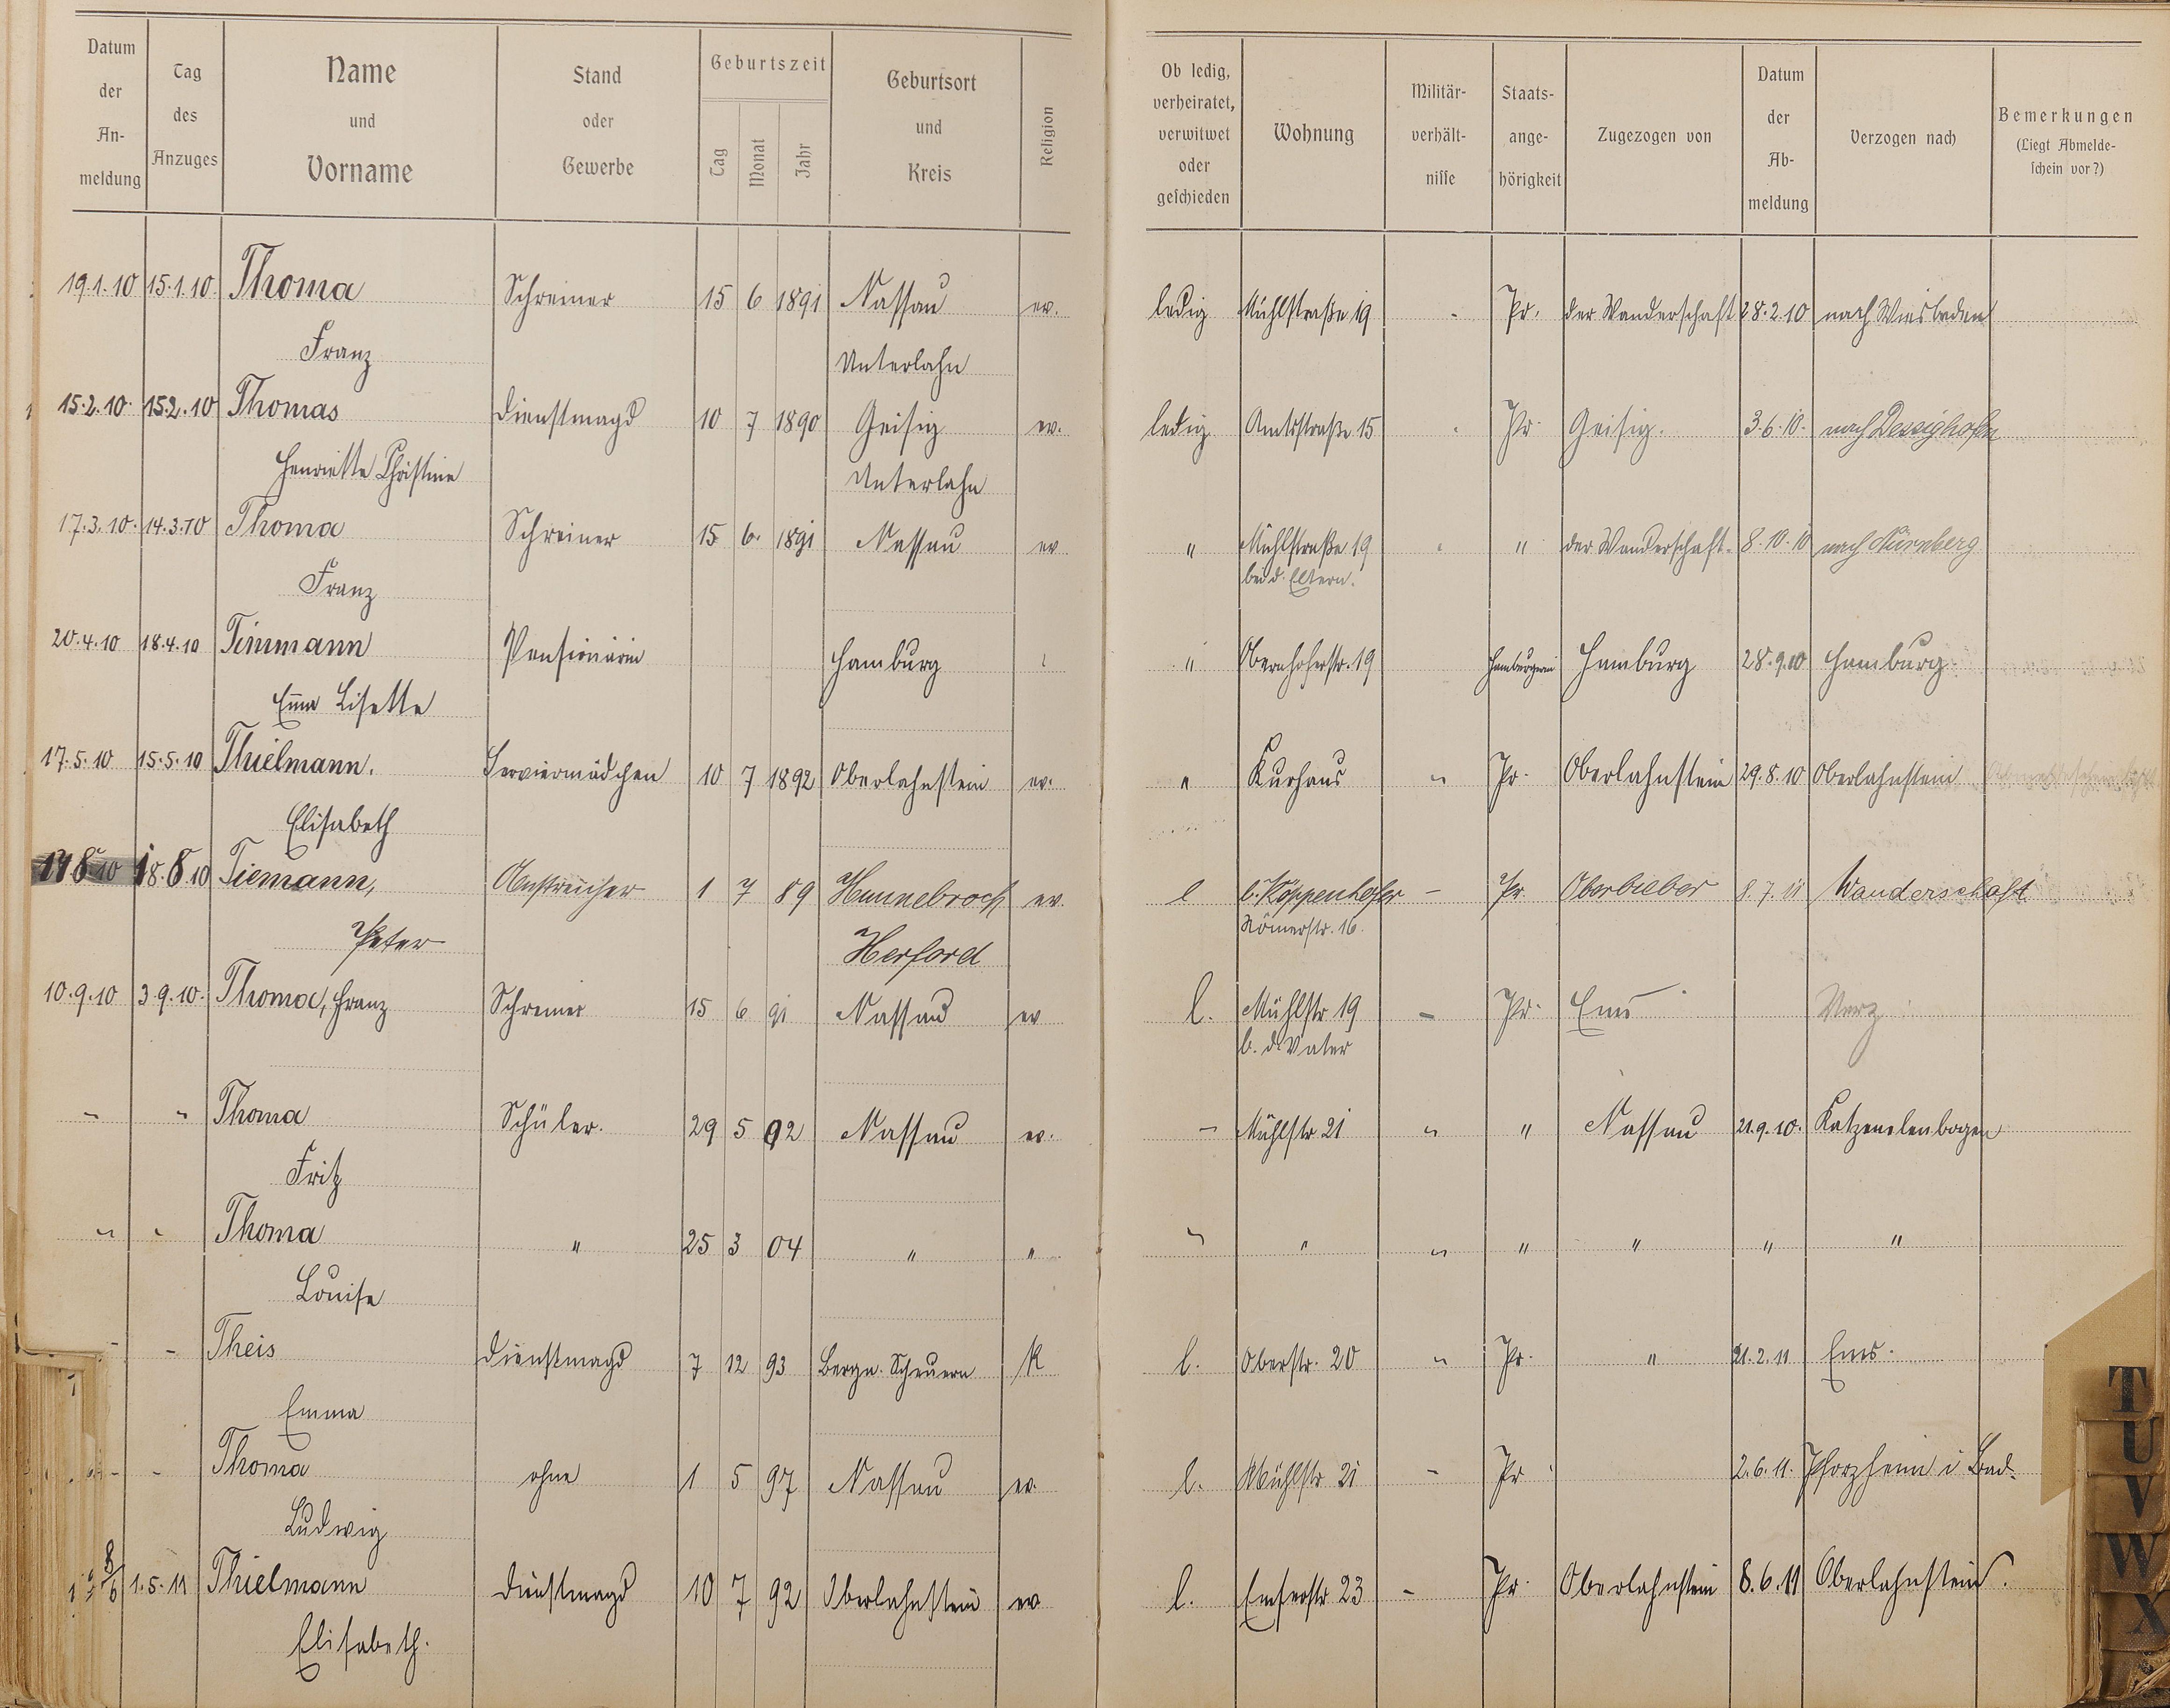 Datum der An-meldung | Tag des Anzuges | Name und Vorname | Stand oder Gewerbe | Geburtszeit Tag Monat Jahr | Geburtsort und Kreis | Religion | Ob ledig, verheiratet, verwitwet oder geschieden | Wohnung | Militär-verhält-nisse | Staats-ange-hörigkeit | Zugezogen von | Datum der Ab-meldung | Verzogen nach | Bemerkungen (Liegt Abmelde-schein vor?)
19.1.10 15.1.10. Thoma Schreiner 15 6 1891 Nassau ev. ledig Mühlstraße 19 - Pr. der Wanderschaft 28.2.10 nach Wiesbaden
Franz Unterlahn
15.2.10. 15.2.10 Thomas Dienstmagd 10 7 1890 Geisig ev. ledig Amtsstraße 15 Pr. Geisig. 3.6.10. nach Dessighofen
Henriette Christine Unterlahn
17.3.10. 14.3.10 Thoma Schreiner 15 6. 1891 Nassau ev " Mühlstraße 19 " der Wanderschaft. 8.10.10 nach Nürnberg
Franz bei d. Eltern.
20.4.10 18.4.10 Timmann Pensionärin Hamburg " Obernhoferstr. 19 Hamburgerin Hamburg 28.9.10 Hamburg.
Emma Lisette
17.5.10 15.5.10 Thielmann. Serviermädchen 10 7 1892 Oberlahnstein ev. " Kurhaus " Pr. Oberlahnstein 29.8.10 Oberlahnstein
Elisabeth
18.8.10 Tiemann, Anstreicher 1 7 89 Hunnebrock ev. l b. Köppenhöfer - Pr Oberbieber 8.7.11 Wanderschaft
Peter Herford Römerstr. 16.
10.9.10 3.9.10. Thoma, Franz Schreiner 15 6 91 Nassau ev l. Mühlstr 19 - Pr. Ems Verz
b. d. Vater
- " Thoma Schüler. 29 5 02 Nassau ev. - Mühlstr 21 " " Nassau 21.9.10. Katzenelenbogen
Fritz
" " Thoma " 25 3 04 " " " " " " " " "
Louise
- - Theis Dienstmagd 7 12 93 Bergn. Scheuern K l. Oberstr. 20 " Pr. " 21.2.11 Ems.
Emma
- - Thoma ohne 1 5 97 Nassau ev. l. Mühlstr 21 - Pr 2.6.11. Pforzheim i Bad.
Ludwig
1.5.11 Thielmann Dienstmagd 10 7 92 Oberlahnstein ev l. Emserstr 23 - Pr. Oberlahnstein 8.6.11 Oberlahnstein.
Elisabeth.
T
U
V
W
X